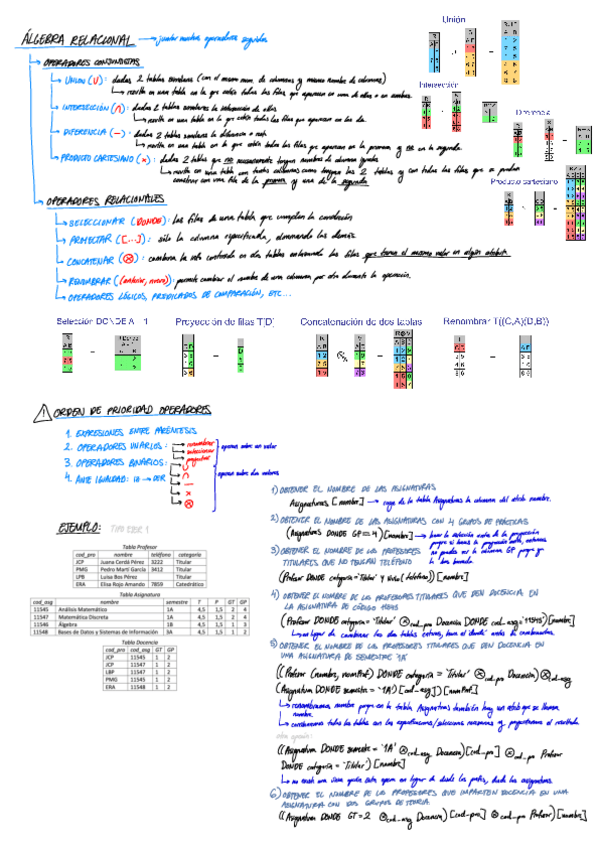 ÁLGEBRA RELACIONAL → juntar muchos operadores seguidos
OPERADORES CONJUNTISTAS
UNIÓN (∪): dadas 2 tablas similares (con el mismo num. de columnas y mismo nombre de columnas)
↳ resulta en una tabla en la que están todas las filas que aparecen en una de ellas o en ambas.
INTERSECCIÓN (∩): dadas 2 tablas similares la intersección de ellas
↳ resulta en una tabla en la que están todas las filas que aparecen en las dos.
DIFERENCIA (−): dadas 2 tablas similares la diferencia o resta
↳ resulta en una tabla en la que están todas las filas que aparecen en la primera y no en la segunda.
PRODUCTO CARTESIANO (×): dadas 2 tablas que no necesariamente tengan nombres de columnas iguales
↳ resulta en una tabla con tantas columnas como tengan las 2 tablas y con todas las filas que se puedan
construir con una fila de la primera y una de la segunda
Unión
Intersección
Diferencia
Producto cartesiano
OPERADORES RELACIONALES
SELECCIONAR (DONDE): las filas de una tabla que cumplen la condición
PROYECTAR ([...]): sólo la columna especificada, eliminando las demás
CONCATENAR (⊗): combina la info contenida en dos tablas enlazando las filas que tienen el mismo valor en algún atributo
RENOMBRAR ((antiguo, nuevo)): permite cambiar el nombre de una columna por otro durante la operación.
OPERADORES LÓGICOS, PREDICADOS DE COMPARACIÓN, ETC...
Selección DONDE A = 1
Proyección de filas T[D]
Concatenación de dos tablas
Renombrar T((C,A)(D,B))
ORDEN DE PRIORIDAD OPERADORES
1. EXPRESIONES ENTRE PARÉNTESIS
2. OPERADORES UNARIOS: renombrar
seleccionar
proyectar
operan sobre un valor
3. OPERADORES BINARIOS: ∪
∩
−
×
⊗
operan sobre dos valores
4. ANTE IGUALDAD: IZ → DER
EJEMPLO:
Tabla Profesor
cod_pro nombre teléfono categoría
JCP Juana Cerdá Pérez 3222 Titular
PMG Pedro Martí García 3412 Titular
LPB Luisa Bos Pérez Titular
ERA Elisa Rojo Amando 7859 Catedrático
Tabla Asignatura
cod_asg nombre semestre T P GT GP
11545 Análisis Matemático 1A 4,5 1,5 2 4
11547 Matemática Discreta 1A 4,5 1,5 2 4
11546 Álgebra 1B 4,5 1,5 1 3
11548 Bases de Datos y Sistemas de Información 3A 4,5 1,5 1 2
Tabla Docencia
cod_pro cod_asg GT GP
JCP 11545 1 2
JCP 11547 1 2
LBP 11547 1 2
PMG 11545 1 2
ERA 11548 1 2
1) OBTENER EL NOMBRE DE LAS ASIGNATURAS
Asignaturas [nombre] → coge de la tabla Asignaturas la columna del atrib nombre.
2) OBTENER EL NOMBRE DE LAS ASIGNATURAS CON 4 GRUPOS DE PRÁCTICAS
(Asignaturas DONDE GP = 4)[nombre] → hacer la selección antes de la proyección
3) OBTENER EL NOMBRE DE LOS PROFESORES
TITULARES QUE NO TENGAN TELÉFONO
(Profesor DONDE categoría = 'Titular' y nulo(teléfono))[nombre]
4) OBTENER EL NOMBRE DE LOS PROFESORES TITULARES QUE DEN DOCENCIA EN
LA ASIGNATURA DE CÓDIGO 11545
(Profesor DONDE categoría = 'Titular' ⊗cod_pro Docencia DONDE cod_asg = '11545')[nombre]
↳ en lugar de combinar las dos tablas enteras, hace el donde antes de combinarlas.
5) OBTENER EL NOMBRE DE LOS PROFESORES TITULARES QUE DEN DOCENCIA EN
UNA ASIGNATURA DE SEMESTRE '1A'
((Profesor (nombre, nomProf) DONDE categoría = 'Titular' ⊗cod_pro Docencia) ⊗cod_asg
(Asignatura DONDE semestre = '1A')[cod_asg])[nomProf]
↳ renombramos nombre porque en la tabla Asignaturas también hay un atrib que se llama
nombre
↳ combinamos todas las tablas con las especificaciones/selecciones necesarias y proyectamos el resultado
otra opción:
((Asignatura DONDE semestre = '1A' ⊗cod_asg Docencia)[cod_pro] ⊗cod_pro Profesor
DONDE categoría = 'Titular')[nombre]
6) OBTENER EL NOMBRE DE LOS PROFESORES QUE IMPARTEN DOCENCIA EN UNA
ASIGNATURA CON DOS GRUPOS DE TEORÍA.
((Asignatura DONDE GT = 2 ⊗cod_asg Docencia)[cod_pro] ⊗cod_pro Profesor)[nombre]